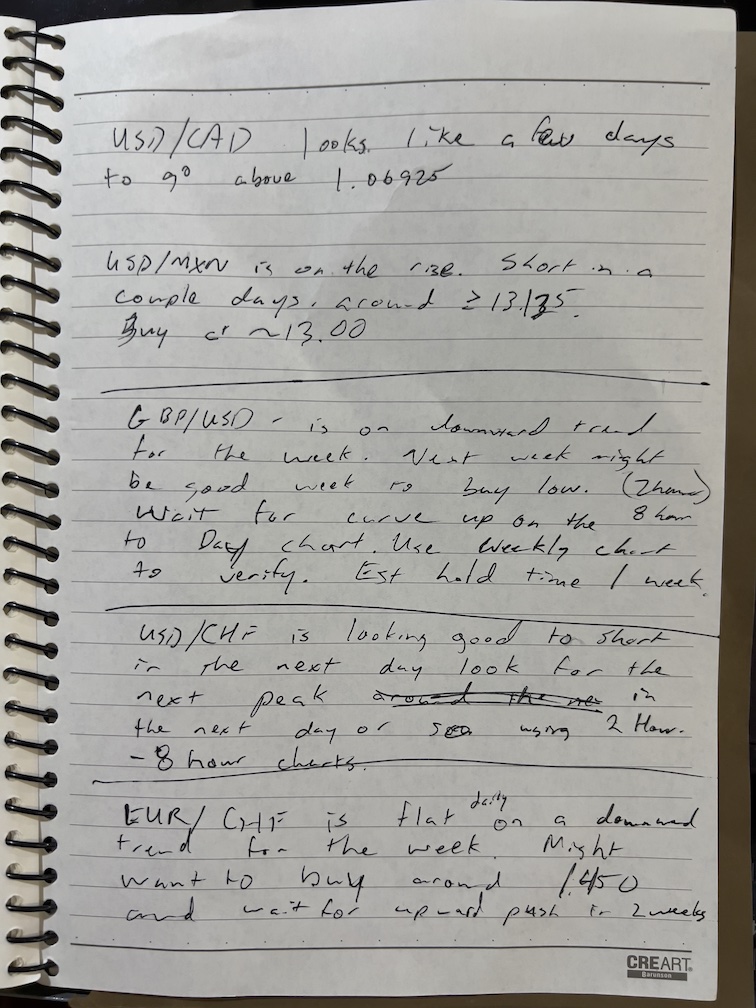 USD/CAD looks like a few days
to go above 1.06925
USD/MXN is on the rise. Short in a
couple days. around ≥ 13.135.
Buy at ~13.00
GBP/USD - is on downward trend
for the week. Next week might
be good week to buy low. (2 hour)
Wait for curve up on the 8 hour
to Day chart. Use Weekly chart
to verify. Est hold time 1 week.
USD/CHF is looking good to short
in the next day look for the
next peak around the ne in
the next day or soo using 2 Hour.
- 8 hour charts.
EUR/CHF is flat daily on a downward
trend for the week. Might
want to buy around 1.450
and wait for upward push in 2 weeks
CREART
Barunson